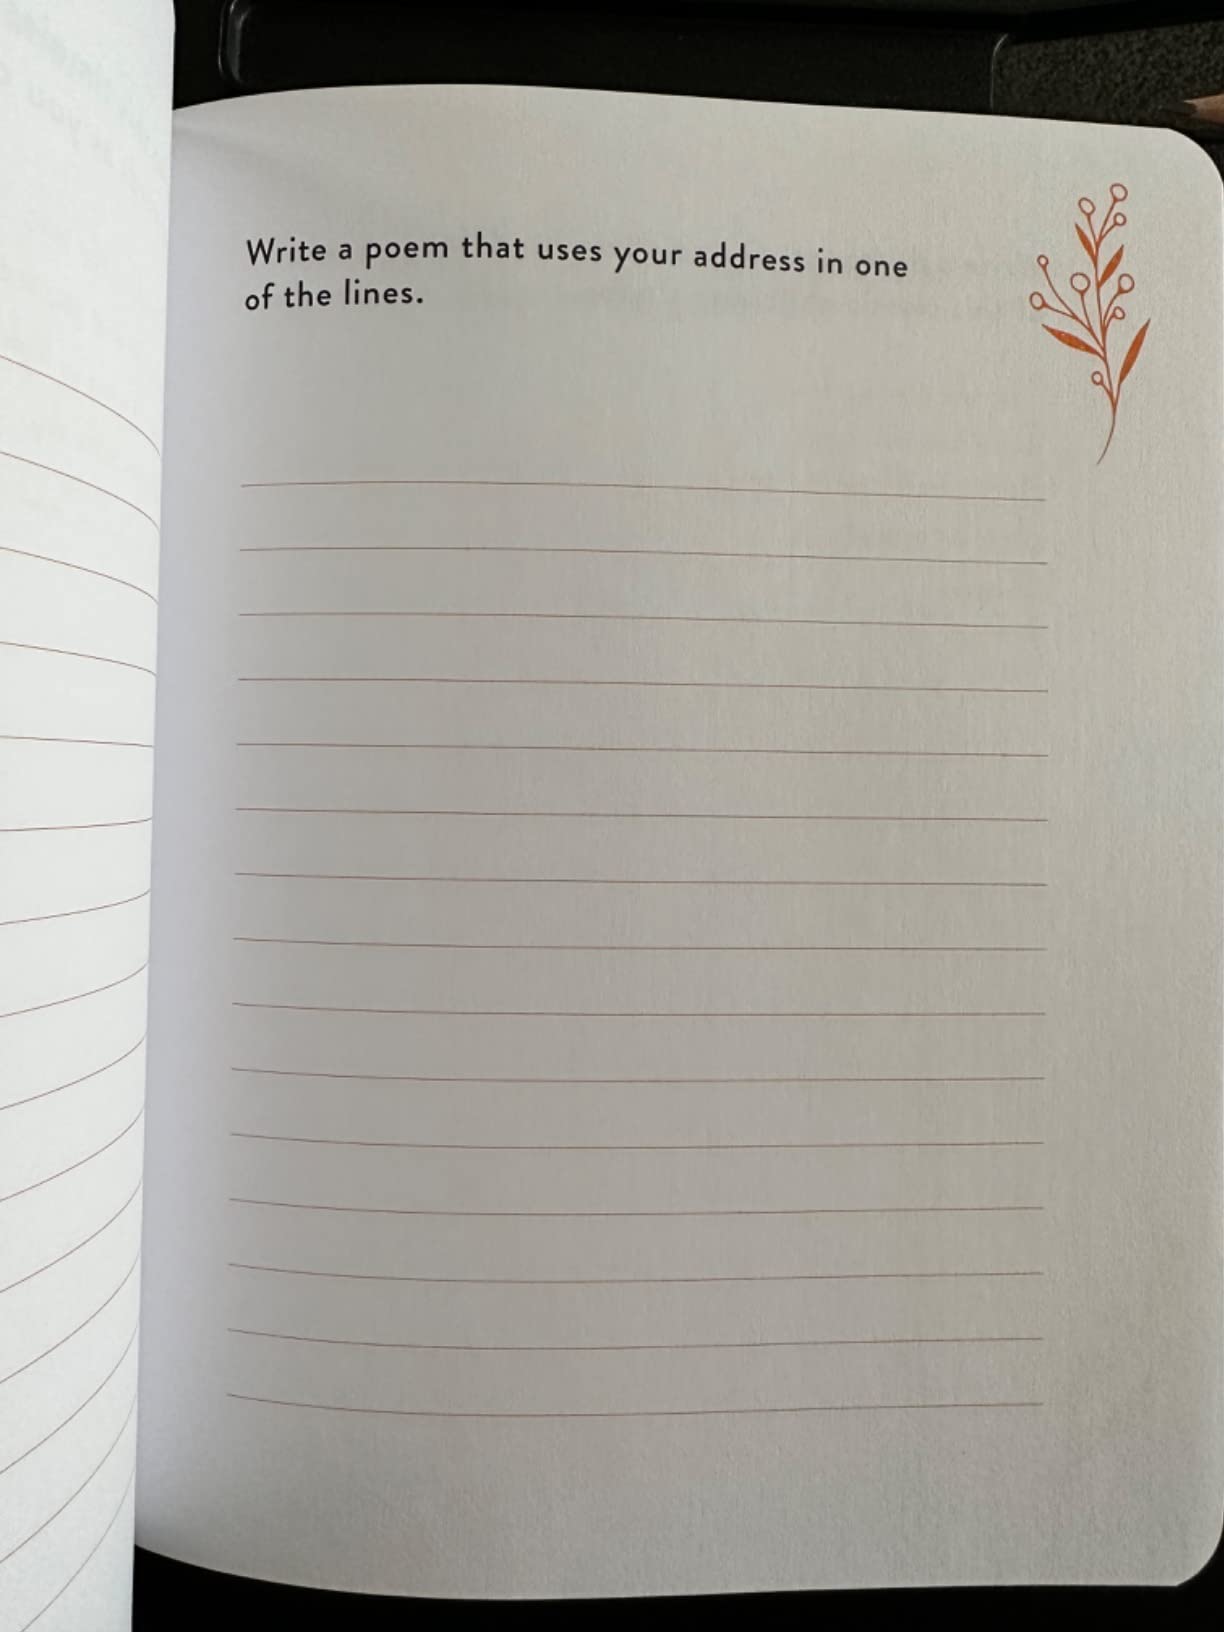 Write a poem that uses your address in one
of the lines.